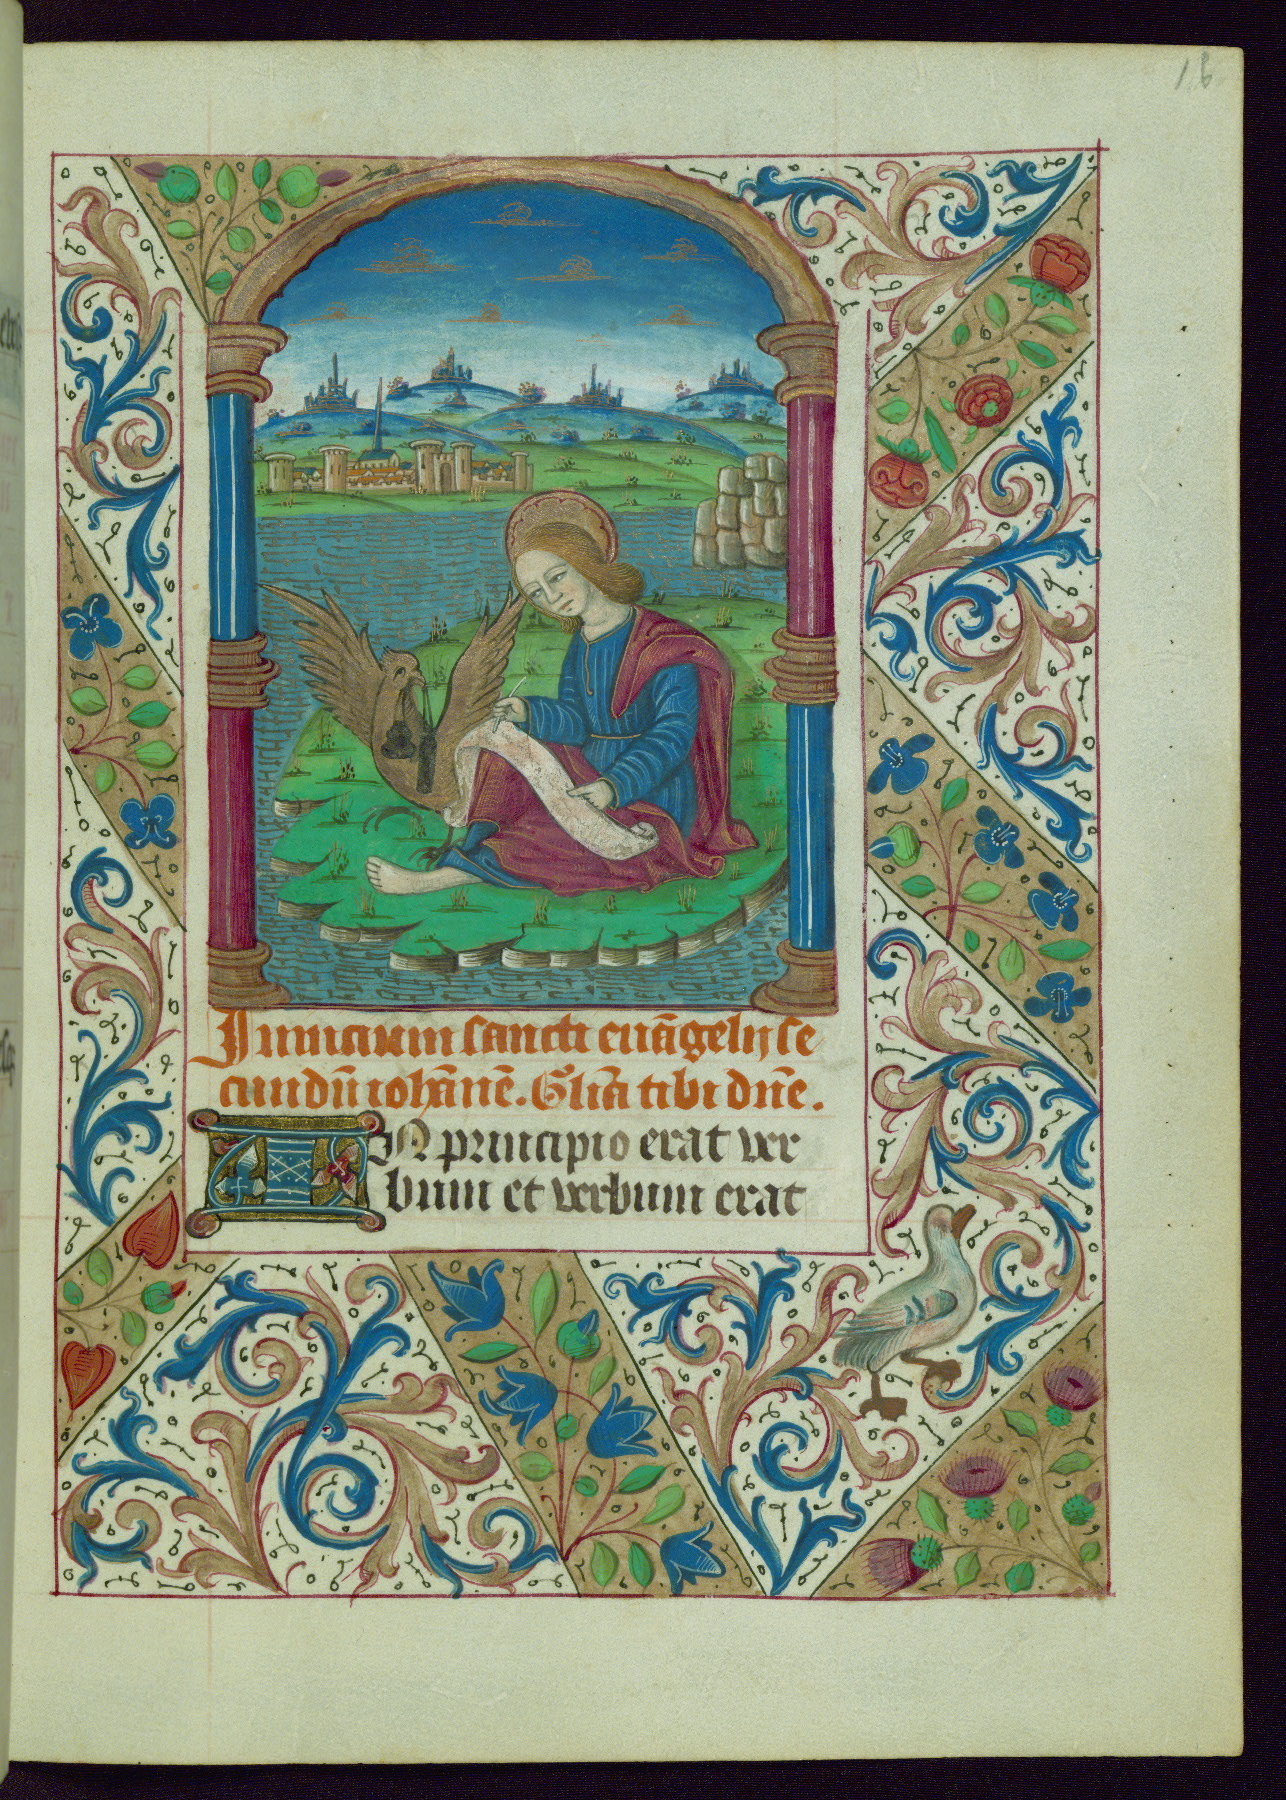 16
Inicium sancti euāgelij se
cundū iohānē. Glīa tibi dn̄e.
IN principio erat ver
bum et verbum erat